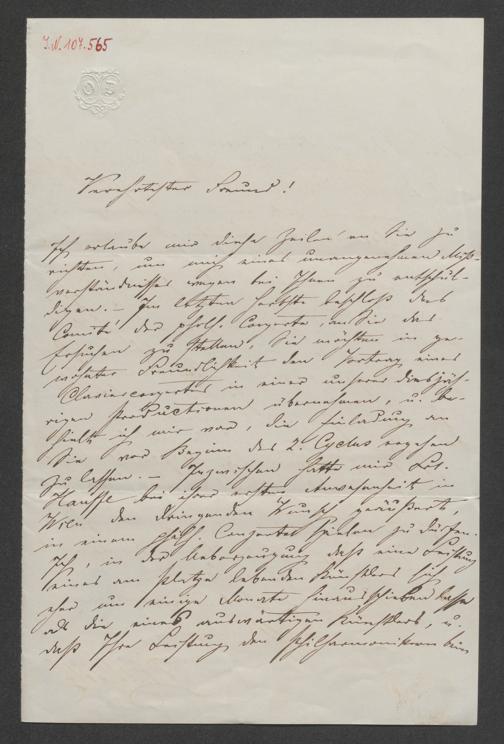 I.N. 107.565
OD
Verehrtester Freund!
Ich erlaube mir diese Zeilen an Sie zu
richten, um mich eines unangenehmen Miß-
verständnisses wegen bei Ihnen zu entschul-
digen. – Im letzten Herbste beschloß das
Comité der philh. Concerte, an Sie das
Ersuchen zu stellen, Sie möchten in ge-
wohnter Freundlichkeit den Vortrag eines
Clavierconzertes in einer unserer diesjäh-
rigen Productionen übernehmen, u. be-
hielt ich mir vor, die Einladung an
Sie vor Beginn des 2. Cyclus ergehen
zu lassen. – Inzwischen hatte mir Frl.
bei ihrer ersten Anwesenheit in
Wien den dringenden Wunsch geäußert,
in einem philh. Concerte spielen zu dürfen.
Ich, in der Ueberzeugung, daß eine Leistung
eines am Platze lebenden Künstlers sich
eher um einige Monate hinausschieben lasse
als die eines auswärtigen Künstlers, u.
daß Ihre Leistung den Philharmonikern bein